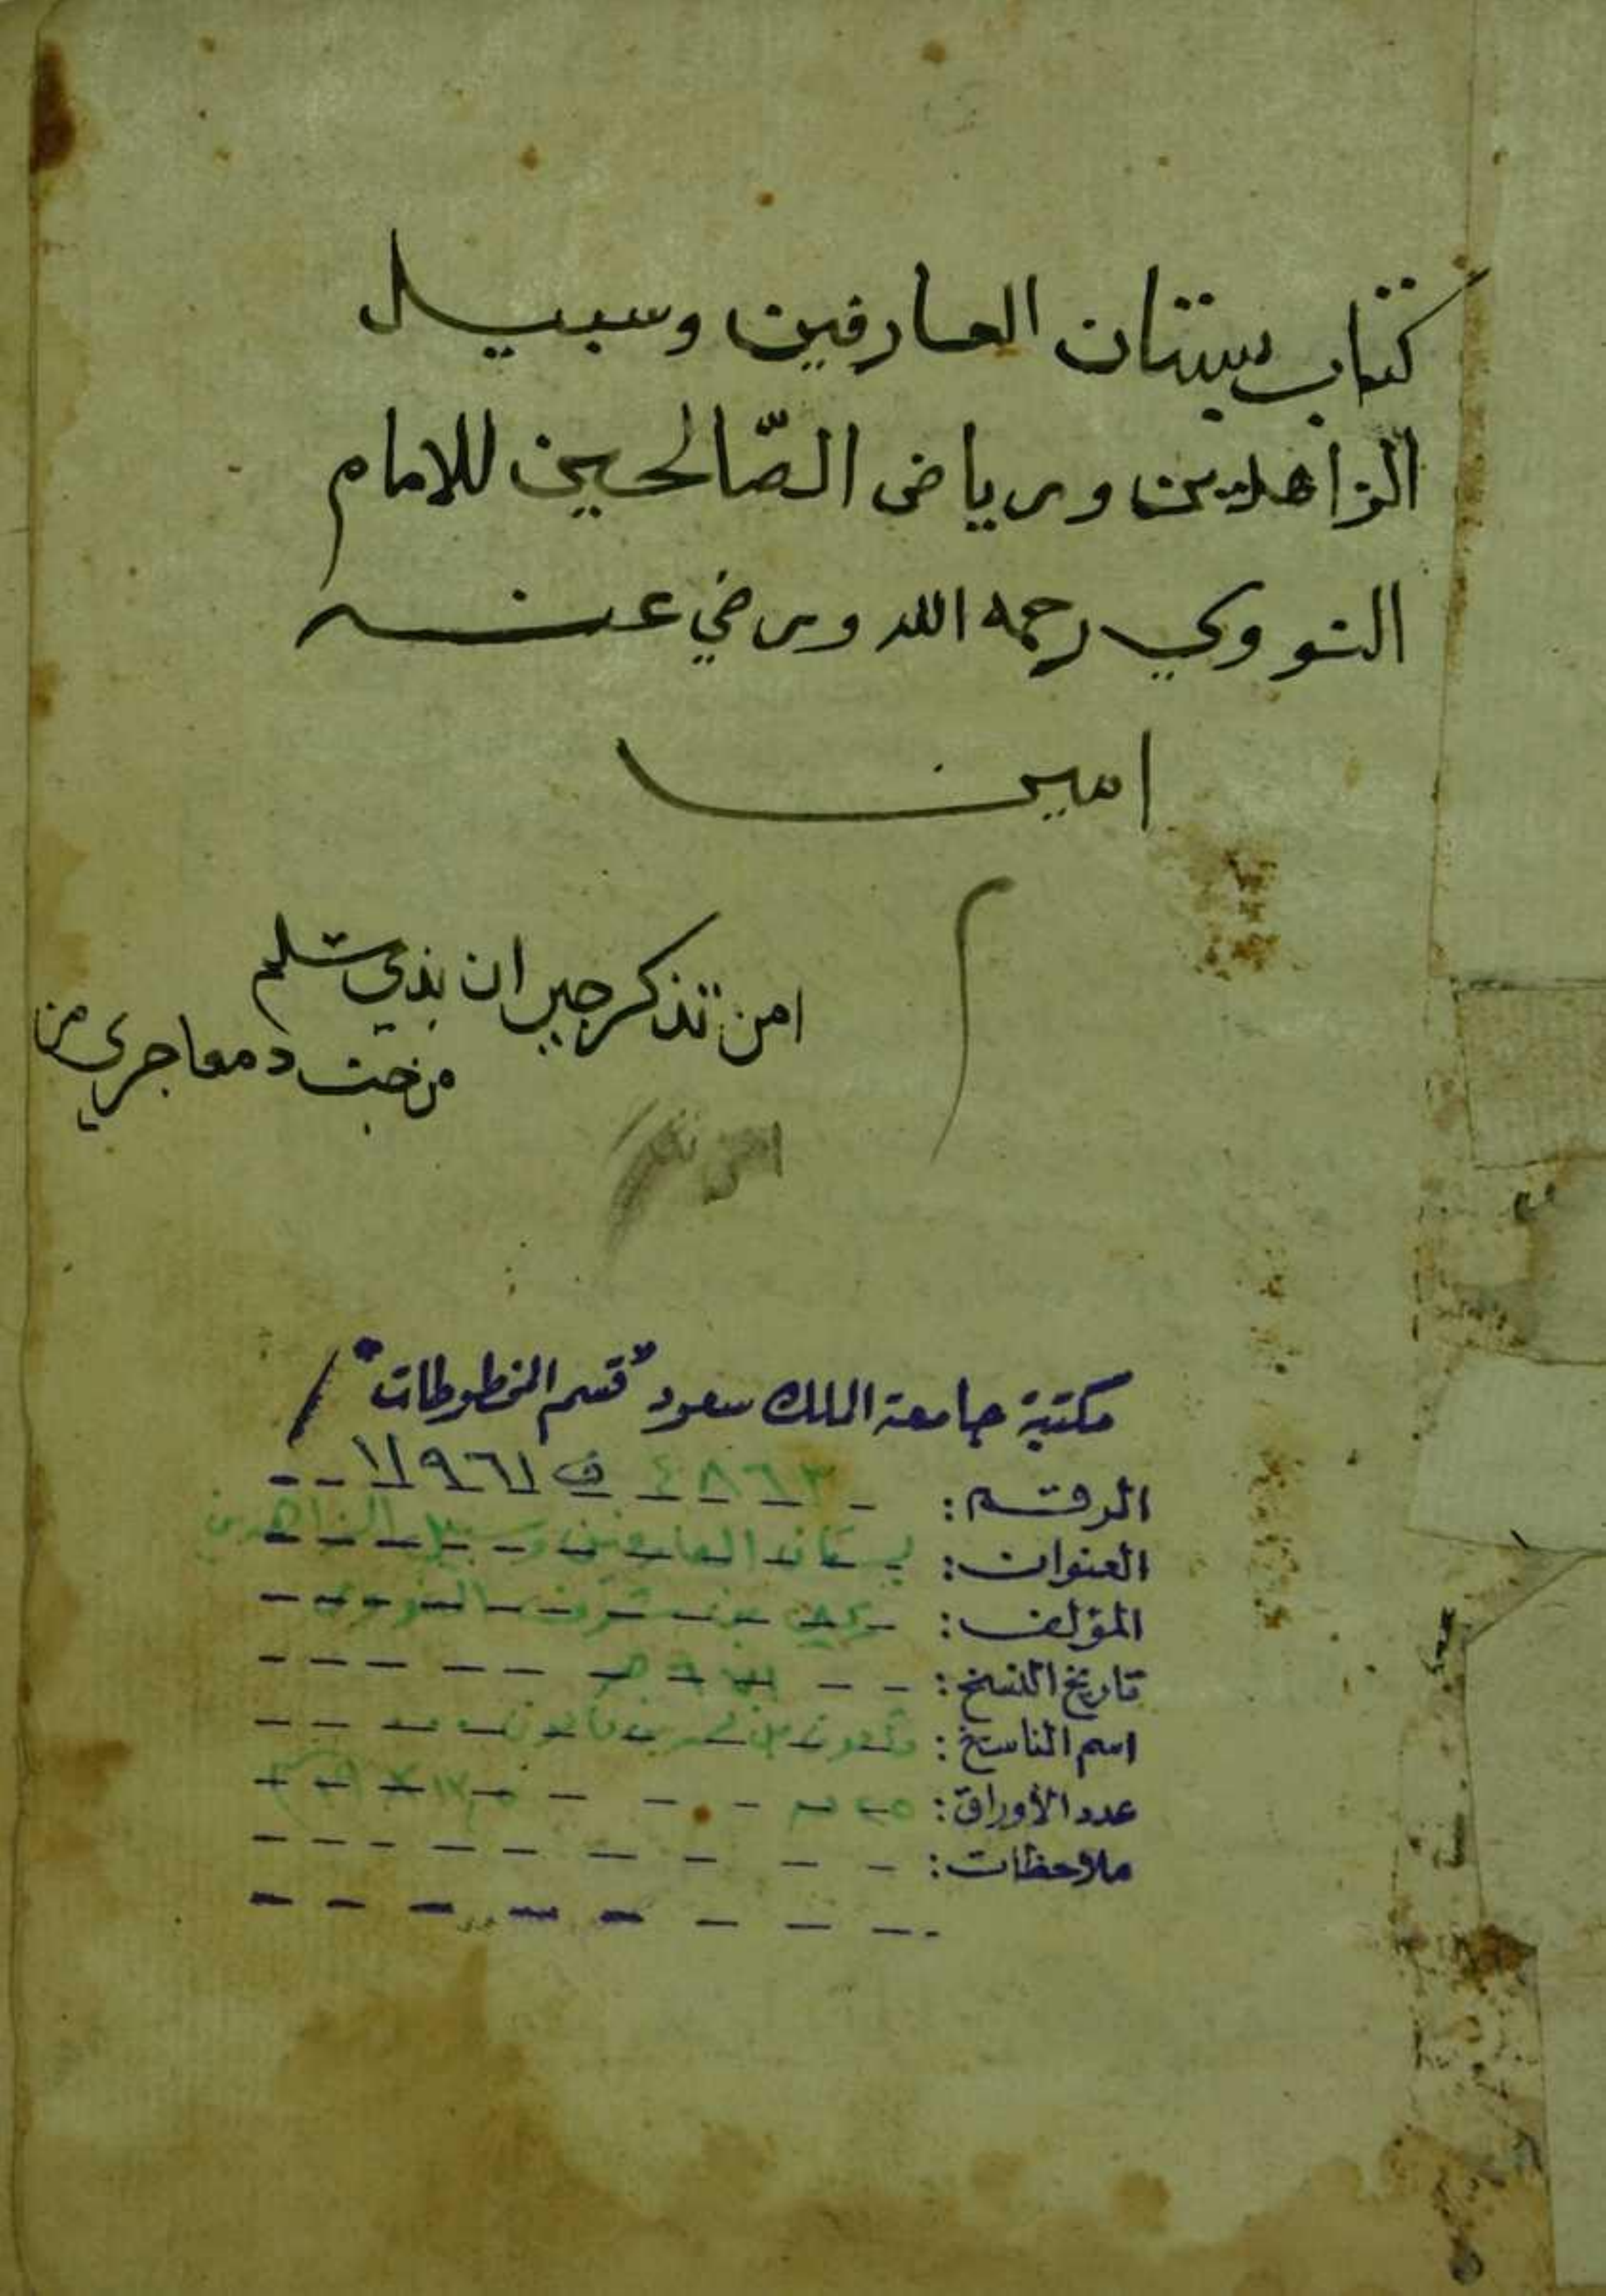 كتاب بستان العارفين وسبيل
الزاهدين ورياض الصّالحين للامام
النووي رحمه الله ورضي عنه
امين
امن تذكر جيران بذي سلم
مزجت دمعا جرى من
امن تذكر
مكتبة جامعة الملك سعود "قسم المخطوطات"
الرقم: ٤٨٦٣ ف ١١٩٦١
العنوان: بستان العارفين وسبيل الزاهدين
المؤلف: يحيى بن شرف النووي
تاريخ النسخ:
اسم الناسخ:
عدد الأوراق:
ملاحظات: